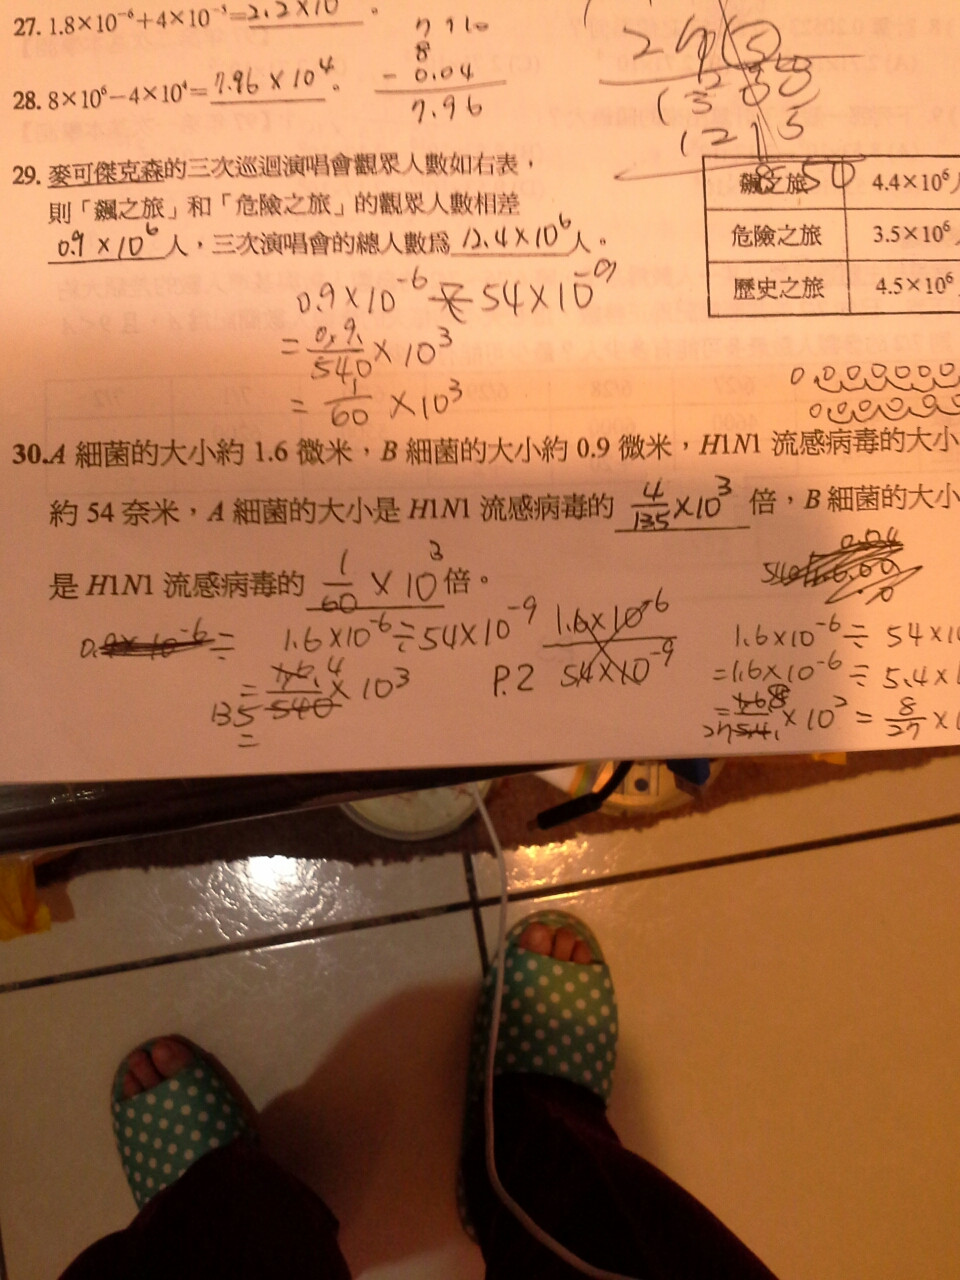 27. 1.8×10⁻⁶+4×10⁻⁷=2.2×10
7.96
8
- 0.04
7.96
28. 8×10⁶−4×10⁴= 7.96 × 10⁴ 。
29. 麥可傑克森的三次巡迴演唱會觀眾人數如右表,
則「飆之旅」和「危險之旅」的觀眾人數相差
0.9 × 10⁶ 人,三次演唱會的總人數為 12.4×10⁶ 人。
飆之旅 4.4×10⁶人
危險之旅 3.5×10⁶人
歷史之旅 4.5×10⁶人
0.9×10⁻⁶ ÷ 54×10⁻⁹
= 0.9/540 × 10³
= 1/60 × 10³
30. A 細菌的大小約 1.6 微米,B 細菌的大小約 0.9 微米,H1N1 流感病毒的大小
約 54 奈米,A 細菌的大小是 H1N1 流感病毒的 4/135 ×10³ 倍,B 細菌的大小
是 H1N1 流感病毒的 1/60 × 10³ 倍。
1.6×10⁻⁶÷54×10⁻⁹
= 4/135 × 10³
=
P.2
1.6×10⁻⁶/54×10⁻⁹
1.6×10⁻⁶÷ 54×10
=1.6×10⁻⁶ ÷ 5.4×1
= 8/27 ×10² = 8/27 ×1